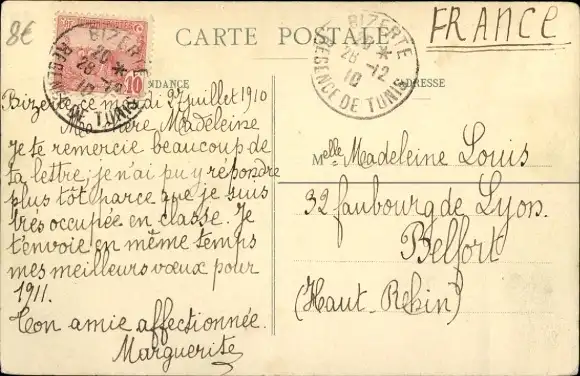 8€
FRANCE
CARTE POSTALE
BIZERTE
20 *
28 -12
10
REGENCE DE TUNIS
10
BIZERTE
28 -12
10
REGENCE DE TUNIS
ADRESSE
Bizerte, ce mardi 27 juillet 1910
Ma chère Madeleine
Je te remercie beaucoup de
ta lettre, je n'ai pu y répondre
plus tôt parce que je suis
très occupée en classe. Je
t'envoie en même temps
mes meilleurs vœux pour
1911.
Ton amie affectionnée.
Marguerite
Melle Madeleine Louis
32 faubourg de Lyon.
Belfort
(Haut-Rhin)